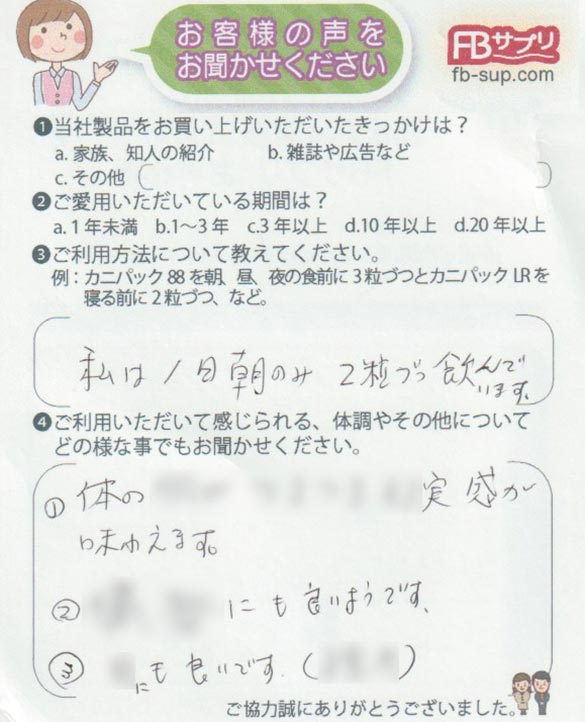 お客様の声を
お聞かせください
FBサプリ
fb-sup.com
❶当社製品をお買い上げいただいたきっかけは？
a. 家族、知人の紹介　b. 雑誌や広告など
c. その他（　）
❷ご愛用いただいている期間は？
a. 1年未満　b.1〜3年　c.3年以上　d.10年以上　d.20年以上
❸ご利用方法について教えてください。
例：カニパック88を朝、昼、夜の食前に3粒づつとカニパックLRを
寝る前に2粒づつ、など。
私は1日朝のみ 2粒づつ飲んで
います。
❹ご利用いただいて感じられる、体調やその他について
どの様な事でもお聞かせください。
① 体の 実感が
味わえます。
② にも良いようです、
③ にも良いです.（　）
ご協力誠にありがとうございました。